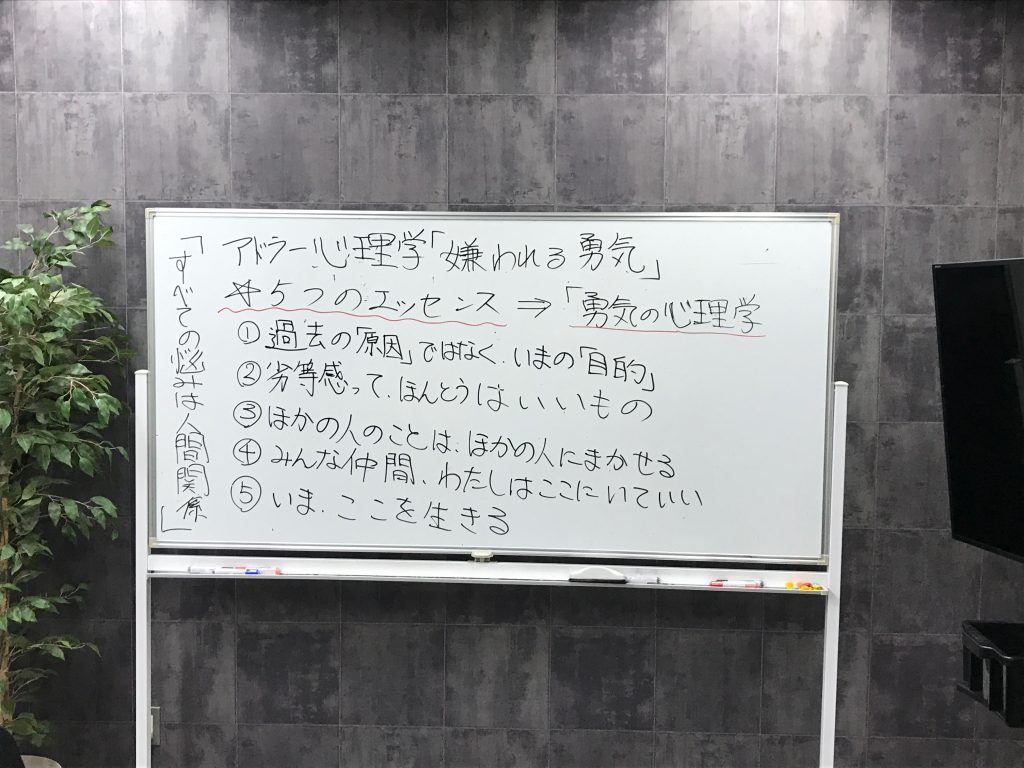 アドラー心理学「嫌われる勇気」
☆5つのエッセンス ⇒ 「勇気の心理学
①過去の「原因」ではなく、いまの「目的」
②劣等感って、ほんとうはいいもの
③ほかの人のことは、ほかの人にまかせる
④みんな仲間、わたしはここにいていい
⑤いま、ここを生きる
「すべての悩みは人間関係」